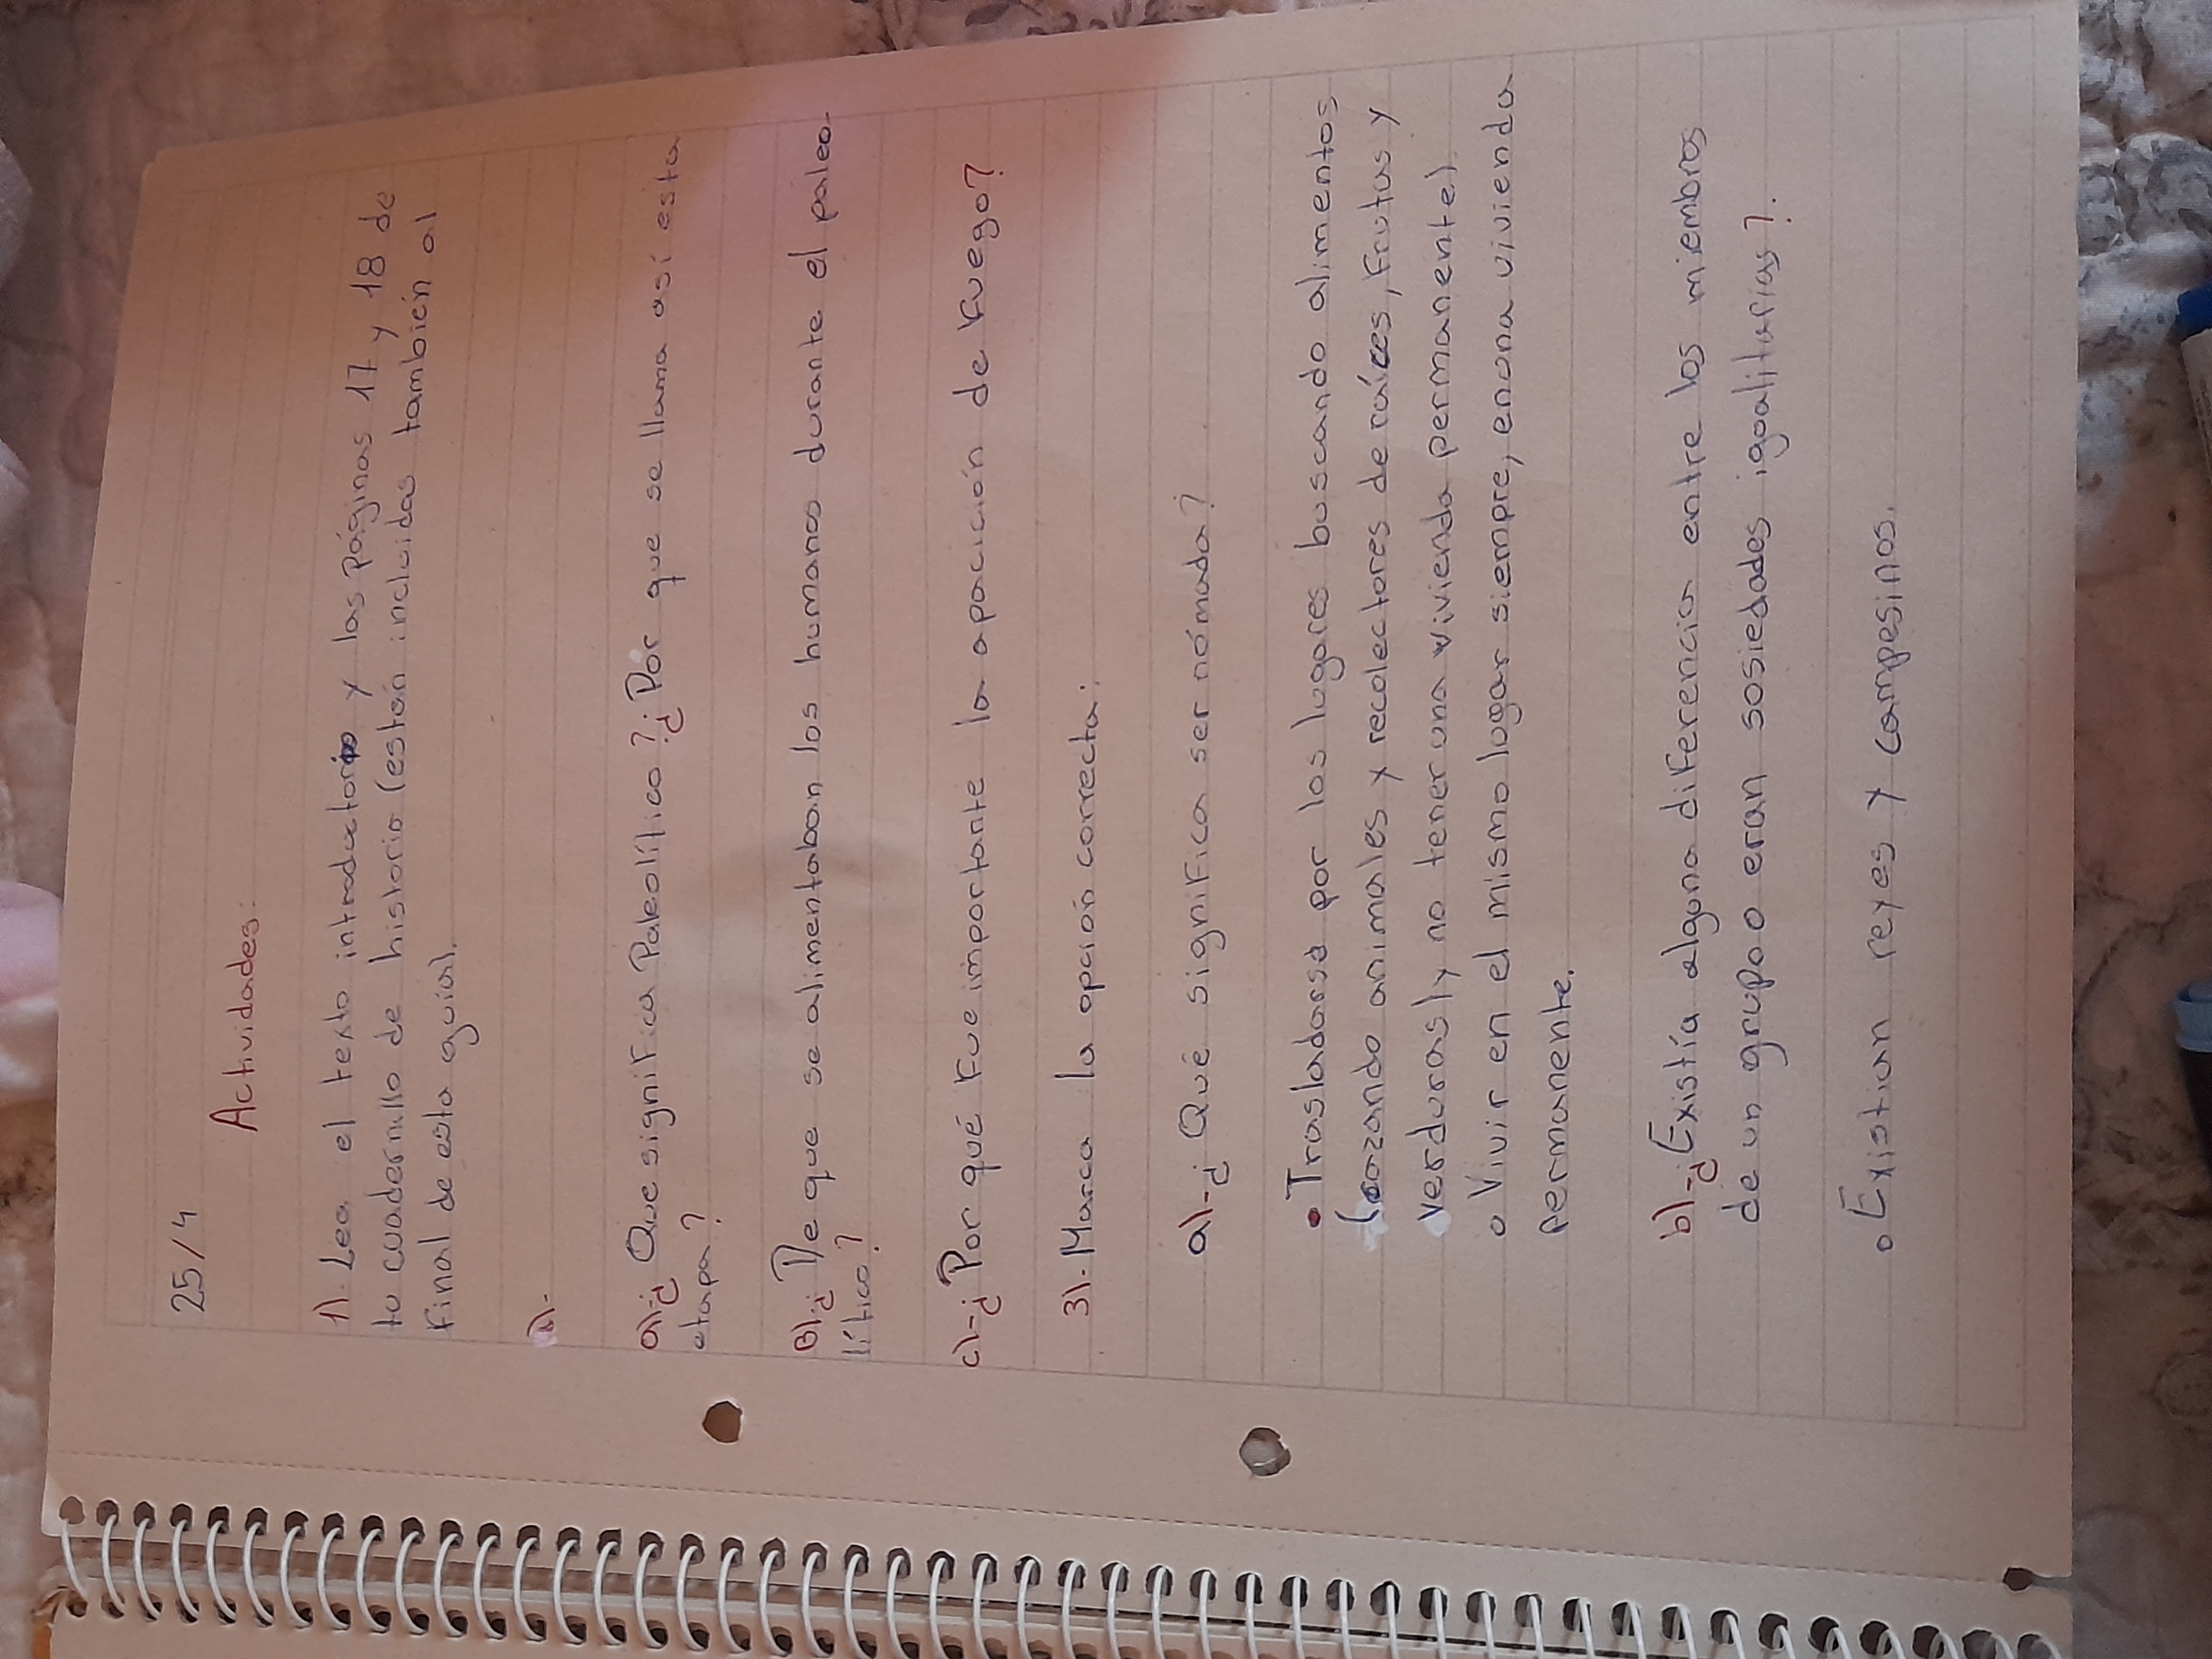 25/4
Actividades:
1)- Lea el texto introductorio y las Páginas 17 y 18 de
tu cuadernillo de historia (están incluidas también al
Final de esta guía).
2)-
a)-¿Que significa Paleolítico?¿Por que se llama así esta
etapa?
B)-¿De que se alimentaban los humanos durante el paleo-
lítico?
c)-¿Por qué Fue importante la aparición de Fuego?
3)- Marca la opción correcta:
a)-¿Qué significa ser nómada?
• Trasladarse por los lugares buscando alimentos
(cazando animales y recolectores de raíces, Frutas y
verduras) y no tener una vivienda permanente).
o Vivir en el mismo lugar siempre, en una vivienda
permanente.
b)-¿Existía alguna diferencia entre los miembros
de un grupo o eran sosiedades igualitarias?.
o Existian reyes y campesinos.